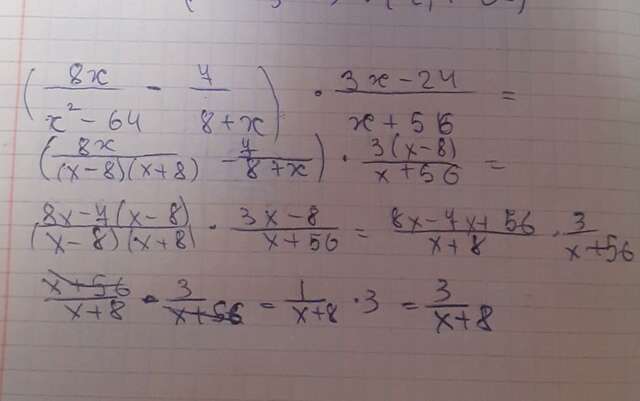 (8x/(x² - 64) - 7/(8+x)) · (3x-24)/(x+56) =
(8x/((x-8)(x+8)) - 7/(8+x)) · 3(x-8)/(x+56) =
(8x-7(x-8))/((x-8)(x+8)) · (3x-8)/(x+56) = (8x-7x+56)/(x+8) · 3/(x+56)
(x+56)/(x+8) · 3/(x+56) = 1/(x+8) · 3 = 3/(x+8)